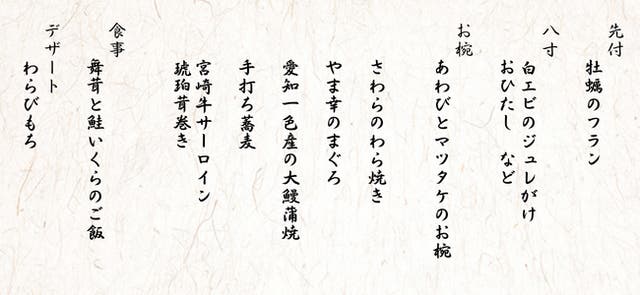 先付
牡蠣のフラン
八寸
白エビのジュレがけ
おひたし など
お椀
あわびとマツタケのお椀
さわらのわら焼き
やま幸のまぐろ
愛知一色産の大鰻蒲焼
手打ち蕎麦
宮崎牛サーロイン
琥珀茸巻き
食事
舞茸と鮭いくらのご飯
デザート
わらびもち